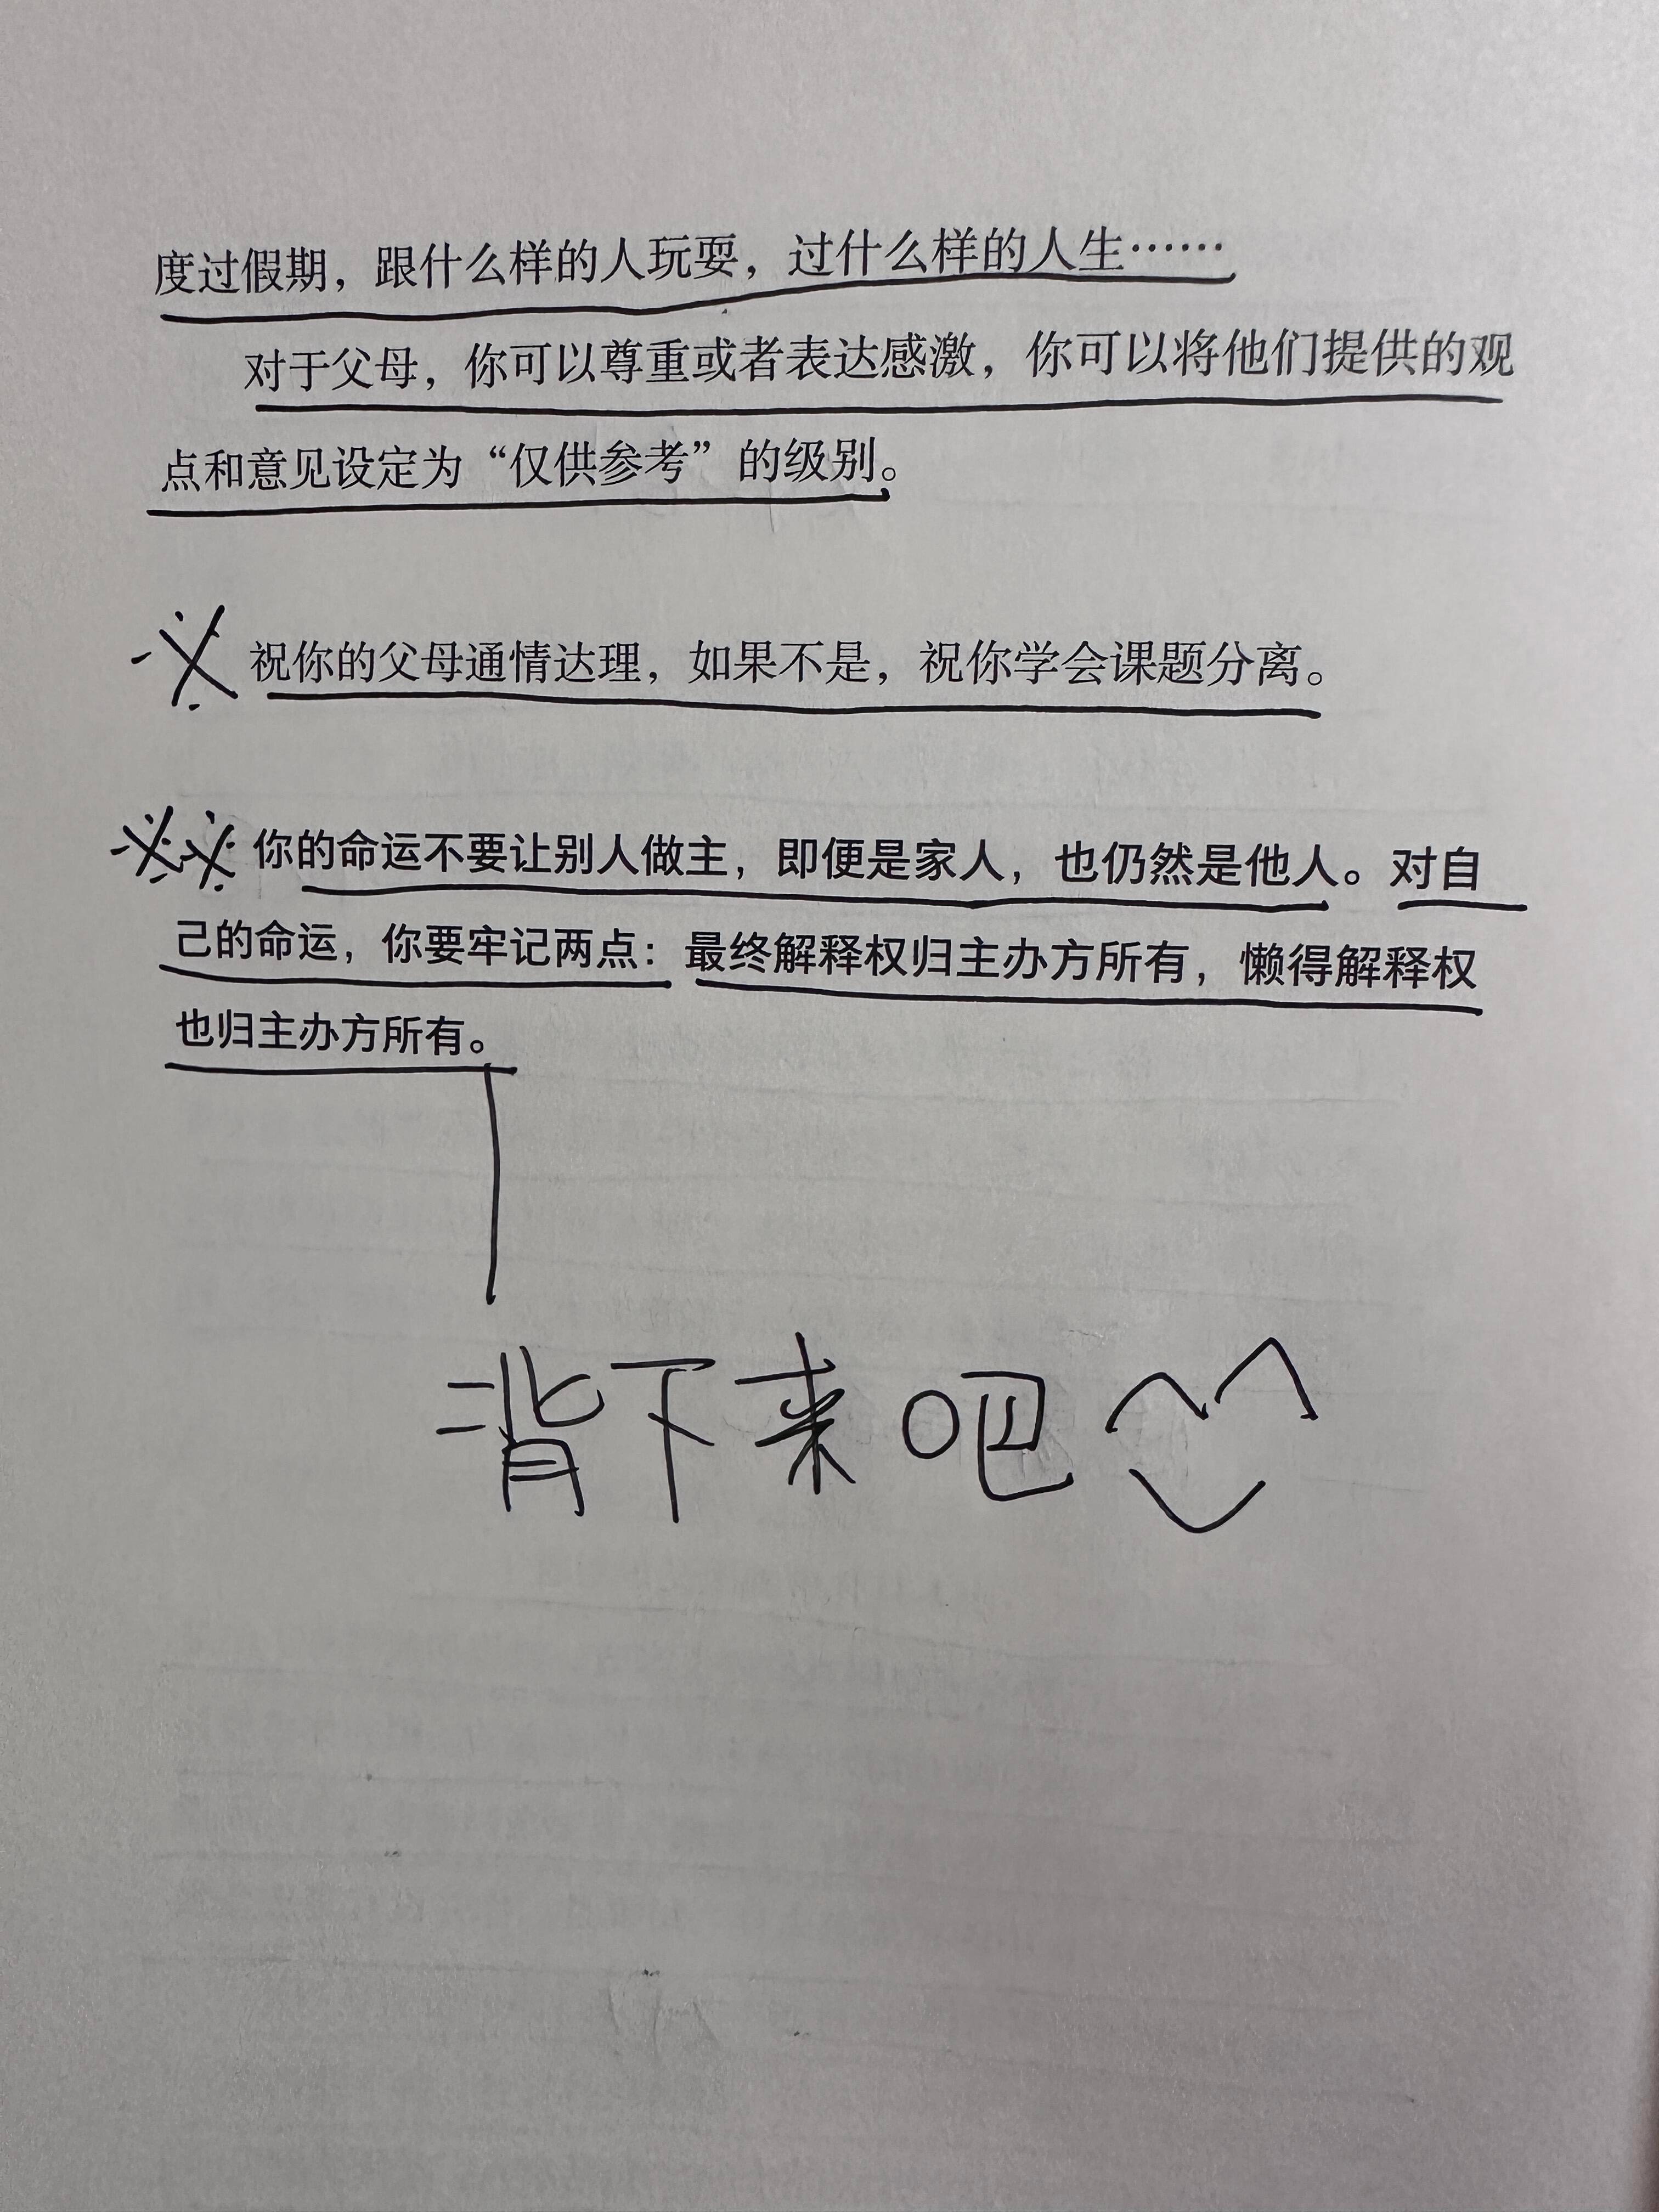 度过假期，跟什么样的人玩耍，过什么样的人生……
对于父母，你可以尊重或者表达感激，你可以将他们提供的观
点和意见设定为“仅供参考”的级别。
祝你的父母通情达理，如果不是，祝你学会课题分离。
你的命运不要让别人做主，即便是家人，也仍然是他人。对自
己的命运，你要牢记两点：最终解释权归主办方所有，懒得解释权
也归主办方所有。
背下来吧